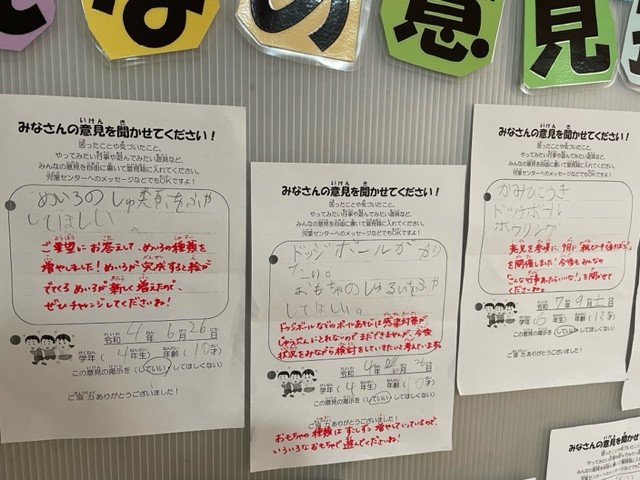 な の 意 見
みなさんの意見を聞かせてください！
困ったことや気づいたこと、
やってみたい行事や遊んでみたい遊具など、
みんなの意見を自由に書いて意見箱に入れてください。
児童センターへのメッセージなどでもOKですよ！
めいろのしゅるいをふや
してほしい。
ご要望にお答えして、めいろの種類を
増やしました！めいろが完成すると絵が
でてくるめいろが新しく増えたので、
ぜひチャレンジしてくださいね！
令和 4年 6月 26日
学年（4年生） 年齢（10才）
この意見の掲示を（していい してほしくない）
ご協力ありがとうございました！
みなさんの意見を聞かせてください！
困ったことや気づいたこと、
やってみたい行事や遊んでみたい遊具など、
みんなの意見を自由に書いて意見箱に入れてください。
児童センターへのメッセージなどでもOKですよ！
ドッジボールがやり
たい。
おもちゃのしゅるいをふや
してほしい。
ドッジボールなどのボールあそびは感染対策が
じゅうぶんにとれないのでまだできませんが、今後
状況をみながら検討をしていきたいと考えています。
令和 4年 月 26日
学年（4年生） 年齢（10才）
この意見の掲示を（していい してほしくない）
ご協力ありがとうございました！
おもちゃの種類はすこしずつ増やしていっているので、
いろいろなおもちゃで遊んでくださいね！
みなさんの意見を聞かせてください！
困ったことや気づいたこと、
やってみたい行事や遊んでみたい遊具など、
みんなの意見を自由に書いて意見箱に入れてください。
児童センターへのメッセージなどでもOKですよ！
かみひこうき
ドッチボール
ボウリング
意見を参考に、9月に
を開催しました！今後もみんなの
「こんな行事あったらいいな！」を聞かせて
くださいね。
令和 7年 9月 日
学年（6年生） 年齢（12才）
この意見の掲示を（していい してほしくない）
ご協力ありがとうございました！
みなさんの意見を聞かせて
困ったことや気づいたこと、